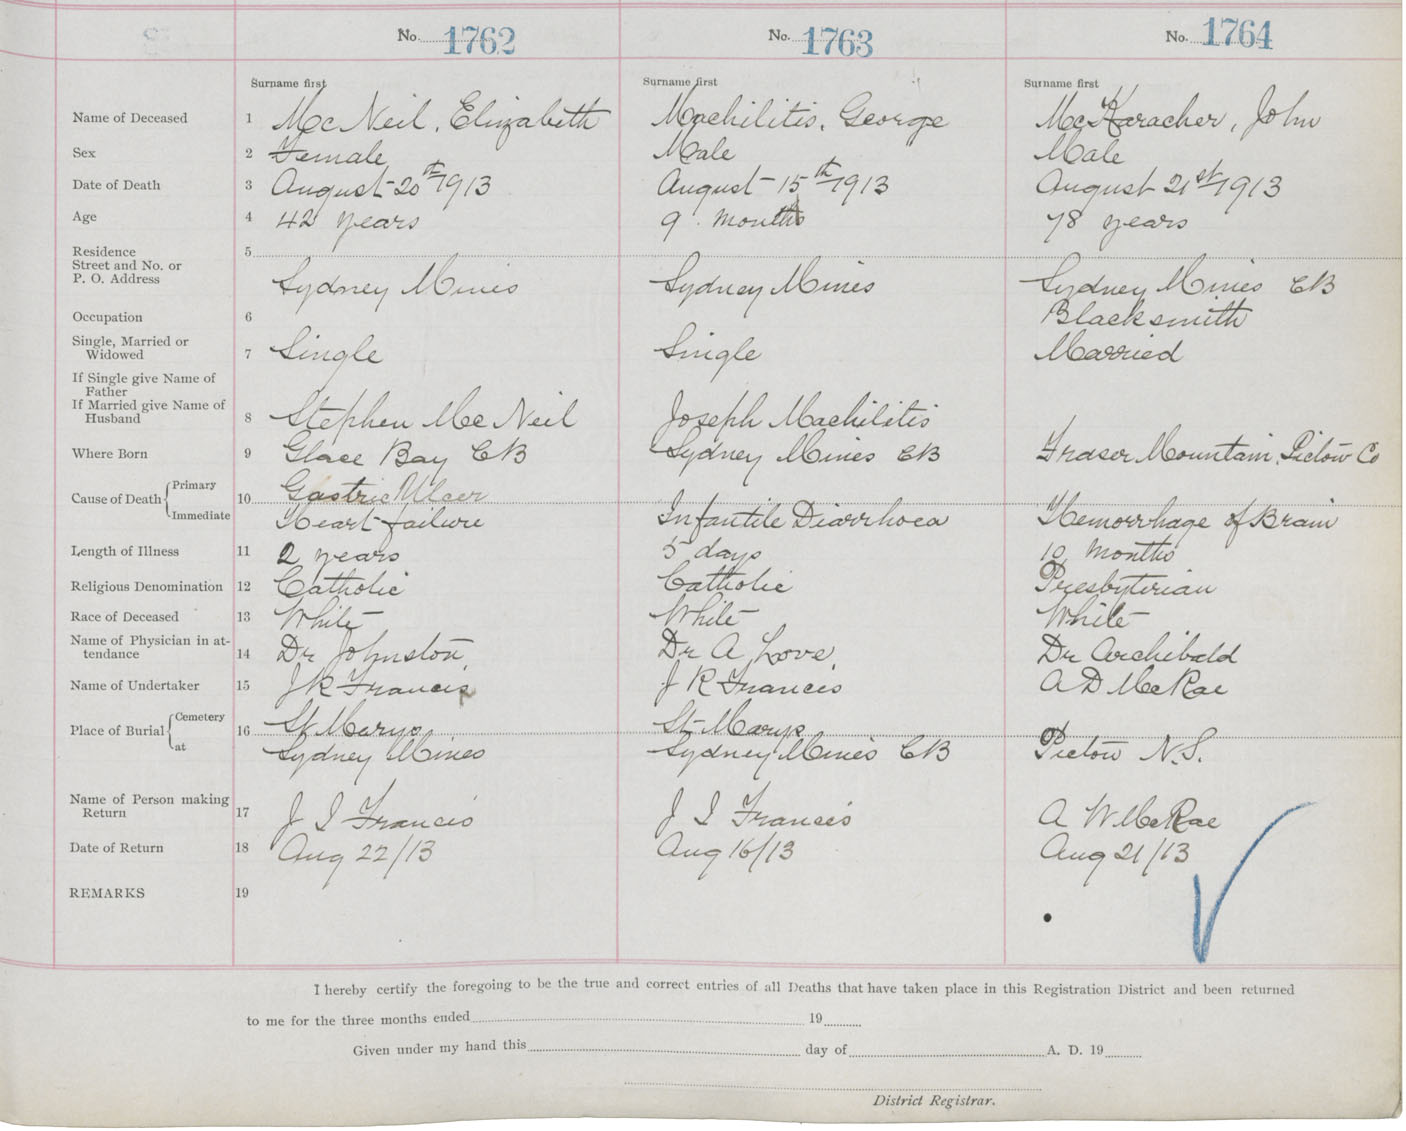 No. 1762 No. 1763 No. 1764
Surname first Surname first Surname first
Name of Deceased 1 McNeil, Elizabeth Machilitis, George McKaracher, John
Sex 2 Female Male Male
Date of Death 3 August 20th 1913 August 15th 1913 August 21st 1913
Age 4 42 years 9 months 78 years
Residence 5
Street and No. or
P. O. Address Sydney Mines Sydney Mines Sydney Mines CB
Occupation 6 Blacksmith
Single, Married or
Widowed 7 Single Single Married
If Single give Name of
Father
If Married give Name of
Husband 8 Stephen McNeil Joseph Machilitis
Where Born 9 Glace Bay CB Sydney Mines CB Fraser Mountain, Pictou Co
Cause of Death { Primary 10 Gastric Ulcer
Immediate Heart failure Infantile Diarrhoea Hemorrhage of Brain
Length of Illness 11 2 years 5 days 10 months
Religious Denomination 12 Catholic Catholic Presbyterian
Race of Deceased 13 White White White
Name of Physician in at-
tendance 14 Dr Johnston Dr A Love Dr Archibald
Name of Undertaker 15 J R Francis J R Francis A D McRae
Place of Burial { Cemetery 16 St Marys St Marys
at Sydney Mines Sydney Mines CB Pictou N.S.
Name of Person making
Return 17 J I Francis J I Francis A W McRae
Date of Return 18 Aug 22/13 Aug 16/13 Aug 21/13
REMARKS 19
I hereby certify the foregoing to be the true and correct entries of all Deaths that have taken place in this Registration District and been returned
to me for the three months ended 19
Given under my hand this day of A. D. 19
District Registrar.